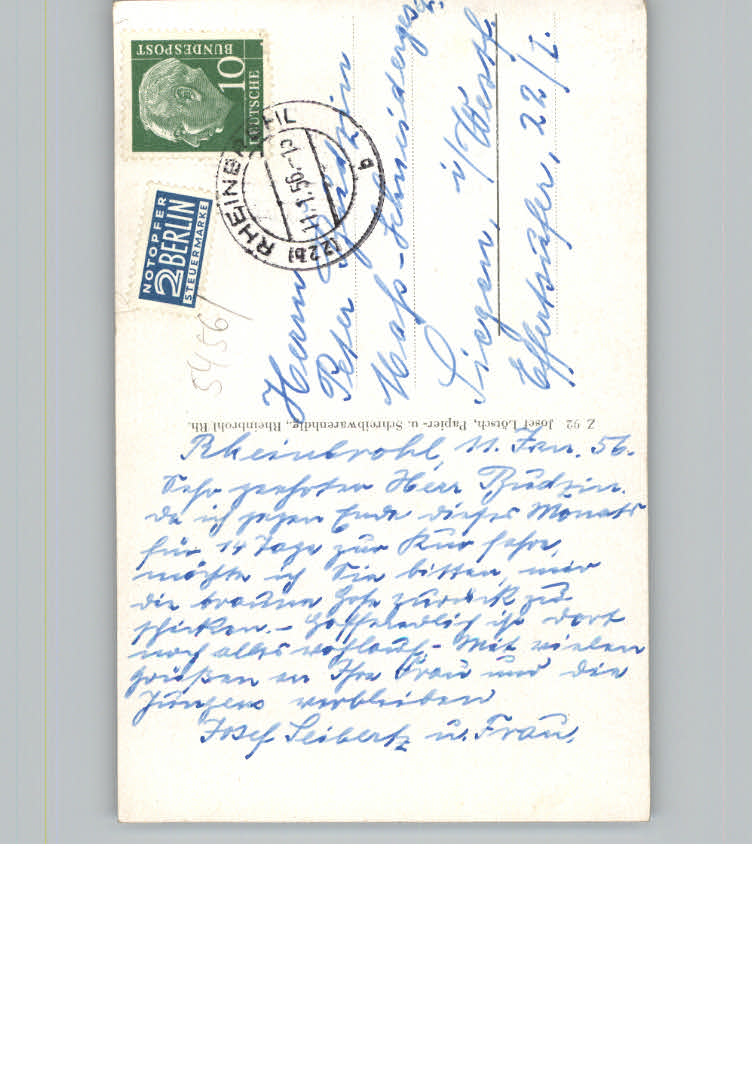 DEUTSCHE
BUNDESPOST
10
NOTOPFER
2 BERLIN
STEUERMARKE
(22b) RHEINBROHL
11.1.56
b
5456
Herrn
Peter Budzin
Maß-Schneiderges.
Siegen, i/Westf.
Effertsufer, 22/I.
Z 92 Josef Lötsch, Papier- u. Schreibwarenhdlg., Rheinbrohl Rh.
Rheinbrohl, 11. Jan. 56.
Sehr geehrter Herr Budzin.
Da ich gegen Ende dieses Monats
für 14 Tage zur Kur fahre,
möchte ich Sie bitten, mir
die braune Hose zurück zu
schicken. - Hoffendlich ist dort
noch alles wohlauf. - Mit vielen
Grüßen an Ihre Frau und die
Jungens verbleiben
Josef Seibertz u. Frau.